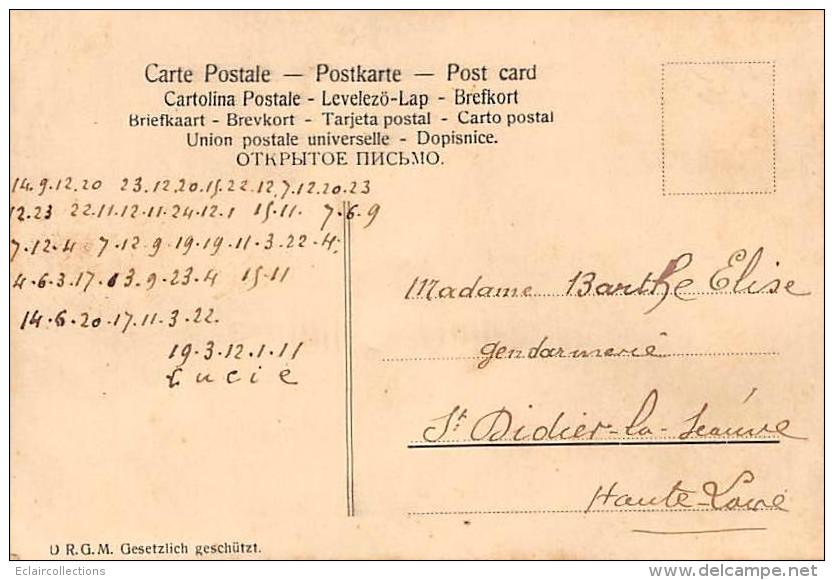 Carte Postale — Postkarte — Post card
Cartolina Postale - Levelező-Lap - Brefkort
Briefkaart - Brevkort - Tarjeta postal - Carto postal
Union postale universelle - Dopisnice.
ОТКРЫТОЕ ПИСЬМО.
14.9.12.20 23.12.20.15.22.12.7.12.20.23
12.23 22.11.12.11.24.12.1 15.11. 7.6.9
7.12.4 7.12.9.19.19.11.3.22.4;
4.6.3.17.13.9.23.4 15.11
14.6.20.17.11.3.22.
19.3.12.1.11
Lucie
Madame Barthe Elise
gendarmerie
St Didier-la-Seauve
Haute-Loire
D R.G.M. Gesetzlich geschützt.
Eclaircollections
http://www.delcampe.net